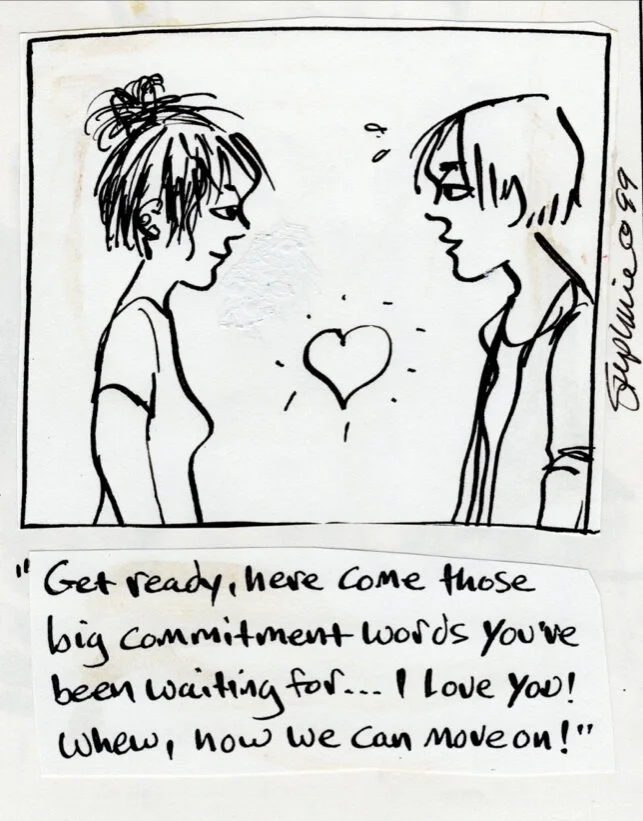 Stephanie © 99
"Get ready, here come those
big commitment words you've
been waiting for... I Love You!
Whew, now we can move on!"